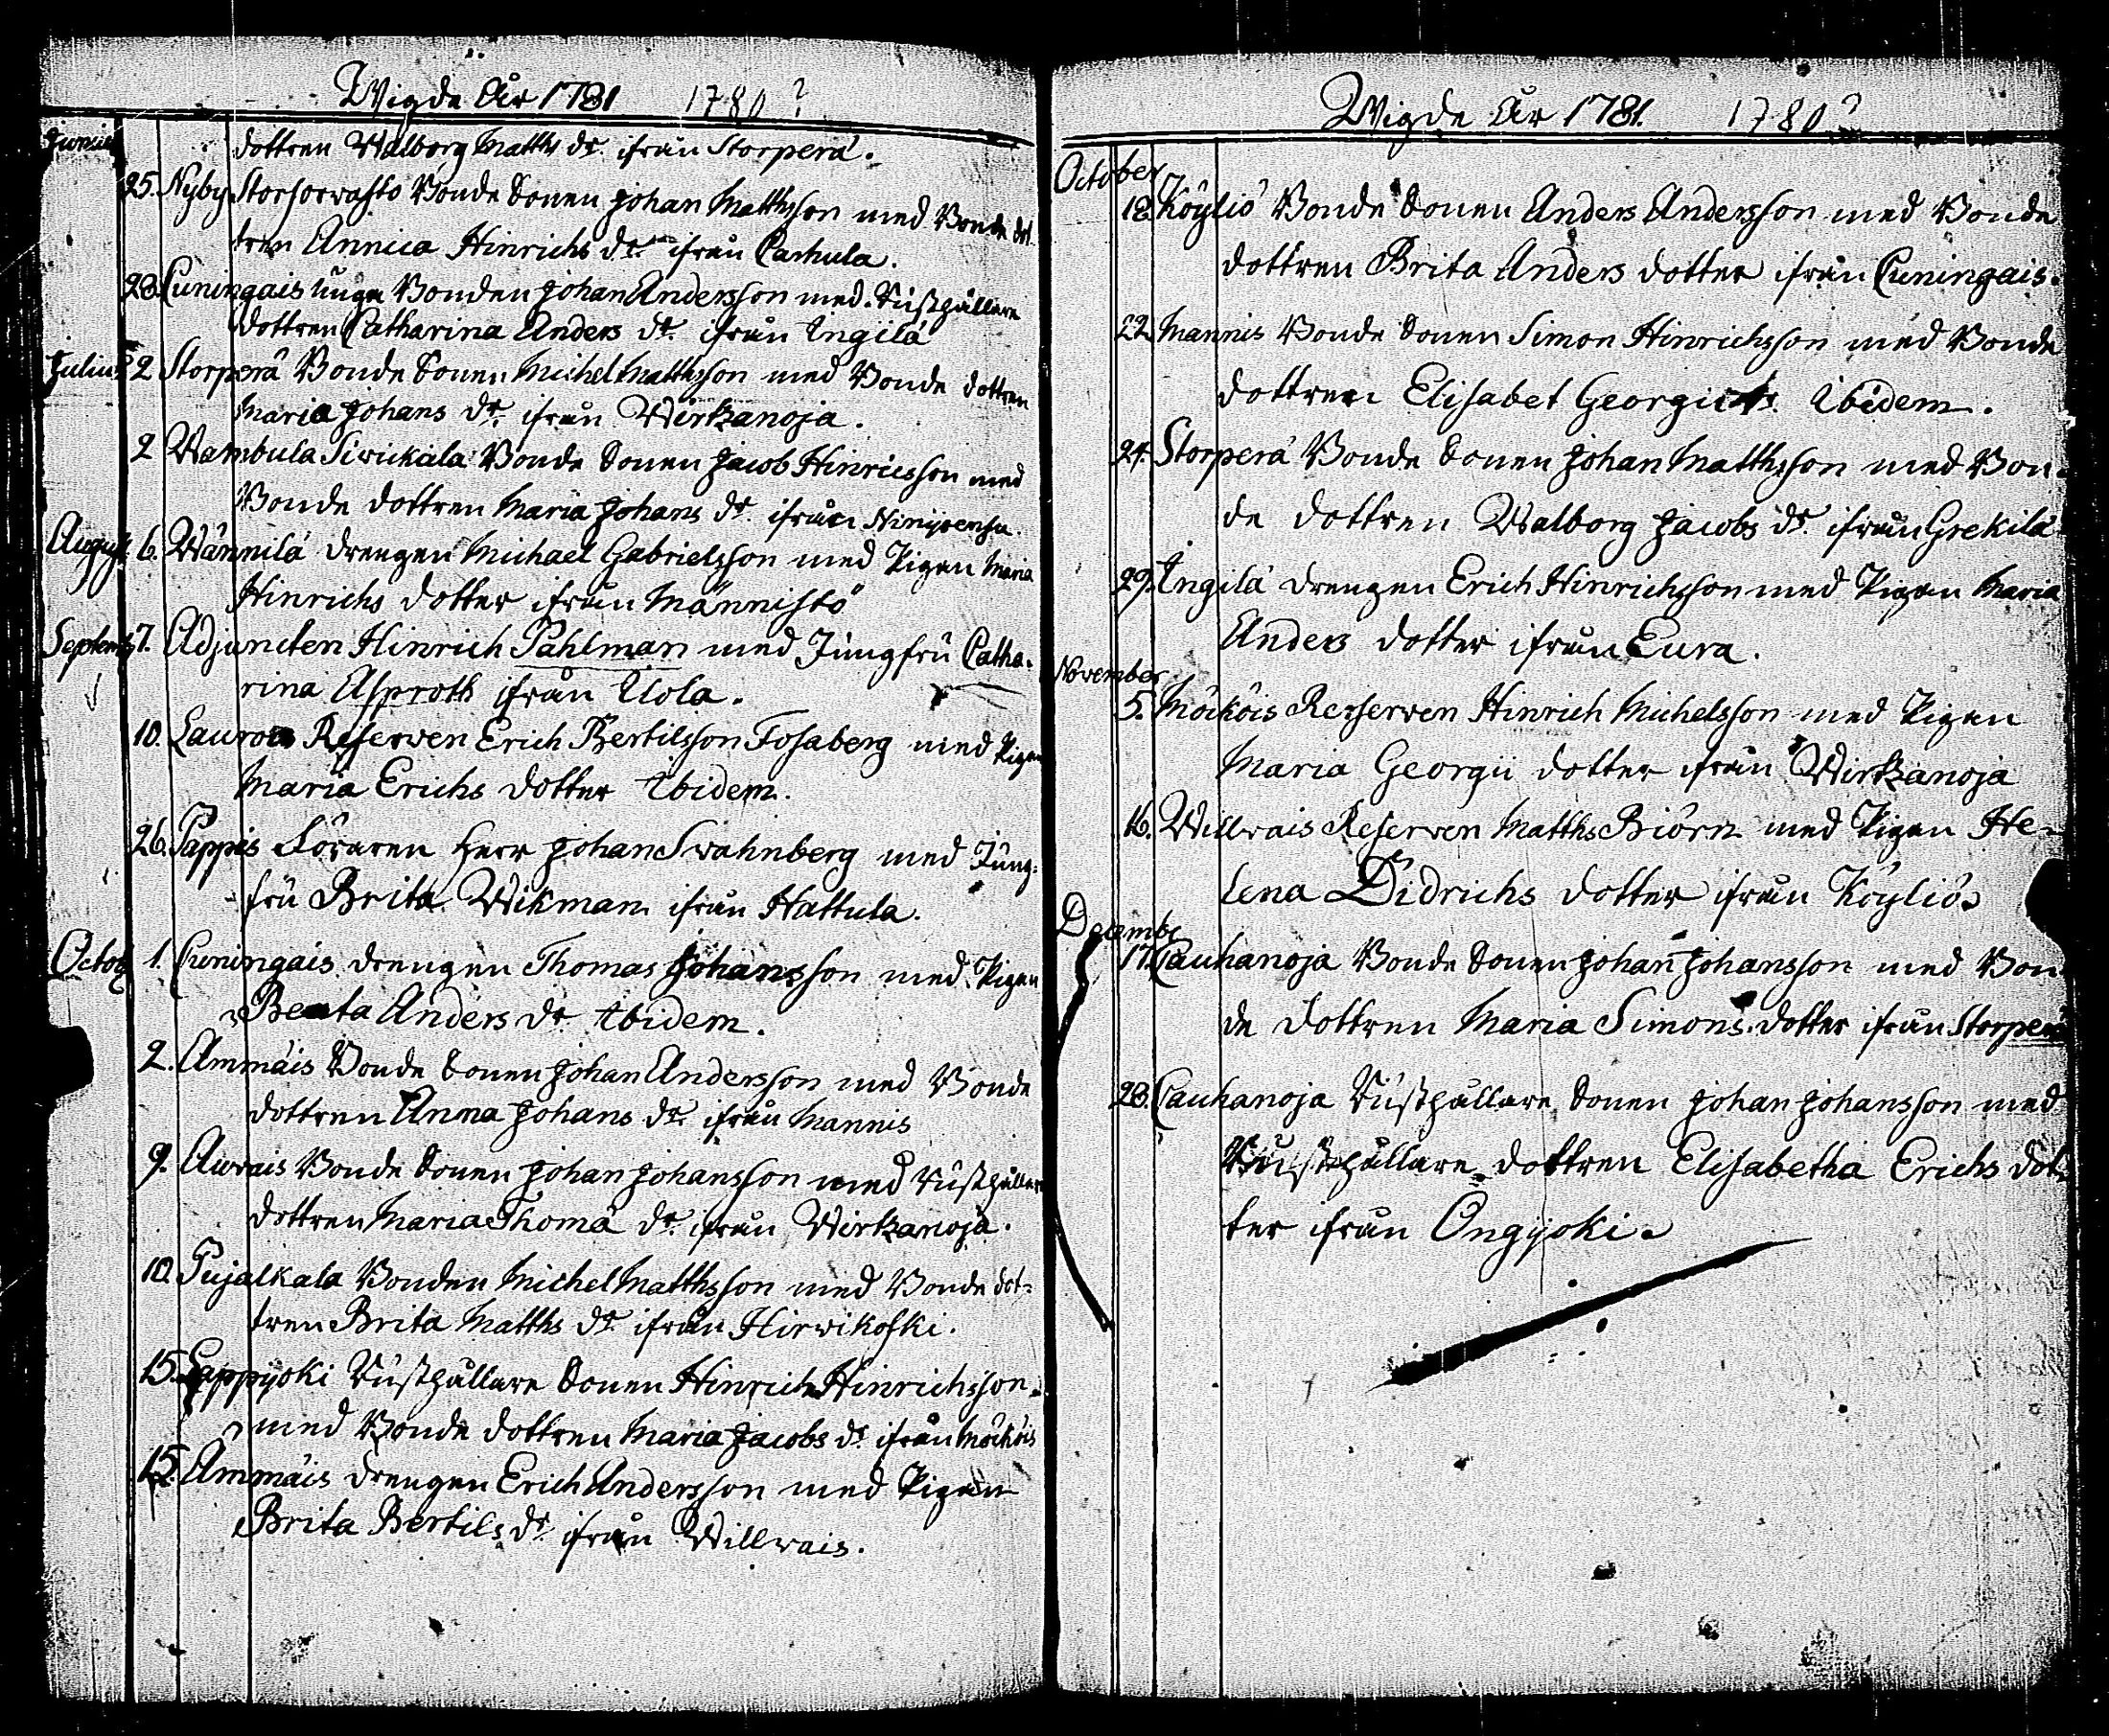 Wigde År 1781 1780?
Junius
dottren Walborg Matths dr. ifrån Storperä.
25. Nyby Storsorwasto Bonde Sonen Johan Matthsson med Bonde dot-
tren Annica Hinrichs dr. ifrån Carhula.
28. Cuningais unga Bonden Johan Andersson med Rusthållare
dottren Catharina Anders dr. ifrån Ingilä
Julius 2 Storperä Bonde Sonen Michel Matthsson med Bonde dottren
Maria Johans dr. ifrån Wirtzanoja.
2 Wambula Siwickala Bonde Sonen Jacob Hinricsson med
Bonde dottren Maria Johans dr. ifrån
August. 6. Wännilä drengen Michael Gabrielsson med Pigan Maria
Hinrichs dotter ifrån Männistö
Septemb 7. Adjuncten Hinrich Pahlman med Jungfru Catha-
rina Asproth ifrån Uola.
10. Lauro Reserven Erich Bertilsson Fosaberg med Pigan
Maria Erichs dotter Ibidem.
26. Pappis Föraren Herr Johan Swahnberg med Jung-
fru Brita Wikman ifrån Hattula.
Octob 1. Cuningais drengen Thomas Johansson med Pigan
Beata Anders dr. Ibidem.
2. Ammäis Bonde Sonen Johan Andersson med Bonde
dottren Anna Johans dr. ifrån Mannis
9. Auvais Bonde Sonen Johan Johansson med Rusthållare
dottren Maria Thomä dr. ifrån Wirtzanoja.
10. Pujalkala Bonden Michel Matthsson med Bonde dot-
tren Brita Matths dr. ifrån Hirwikoski.
15. Lappijoki Rusthållare Sonen Hinrich Hinrichsson
med Bonde dottren Maria Jacobs dr. ifrån Möcköis
15. Ammäis drengen Erich Andersson med Pigan
Brita Bertils dr. ifrån Willwais.
Wigde År 1781. 1780?
October
18. Köyliö Bonde Sonen Anders Andersson med Bonde
dottren Brita Anders dotter ifrån Cuningais.
22. Mannis Bonde Sonen Simon Hinrichsson med Bonde
dottren Elisabet Georgii dr. Ibidem.
24. Storperä Bonde Sonen Johan Matthsson med Bon-
de dottren Walborg Jacobs dr. ifrån Grekilä
29. Ingilä drengen Erich Hinrichsson med Pigan Maria
Anders dotter ifrån Eura.
November
5. Möcköis Reserven Hinrich Michelsson med Pigan
Maria Georgii dotter ifrån Wirtzanoja
16. Willwais Reserven Matths Biörn med Pigan He-
lena Didrichs dotter ifrån Köyliö.
Decemb
17. Cauhanoja Bonde Sonen Johan Johansson med Bon-
de dottren Maria Simons dotter ifrån Storperä
28. Cauhanoja Rusthållare Sonen Johan Johansson med
Rusthållare dottren Elisabetha Erichs dot-
ter ifrån Ongijoki.